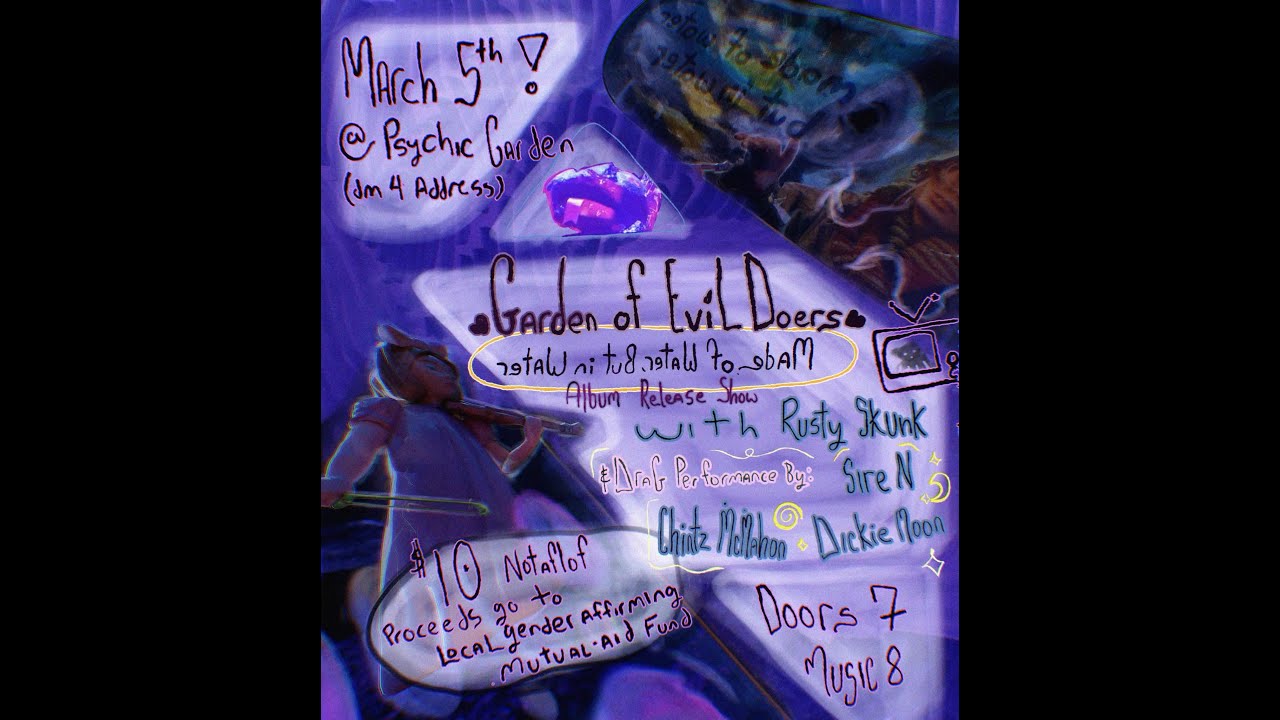 March 5th!
@ Psychic Garden
(dm 4 Address)
Made of water
but in water
Garden of Evil Doers
Made of Water, But in Water
Album Release Show
with Rusty Skunk
& Drag Performance By: Sire N
Chintz McMahon Dickie Moon
$10 Notaflof
Proceeds go to
Local gender affirming
Mutual-Aid Fund
Doors 7
Music 8